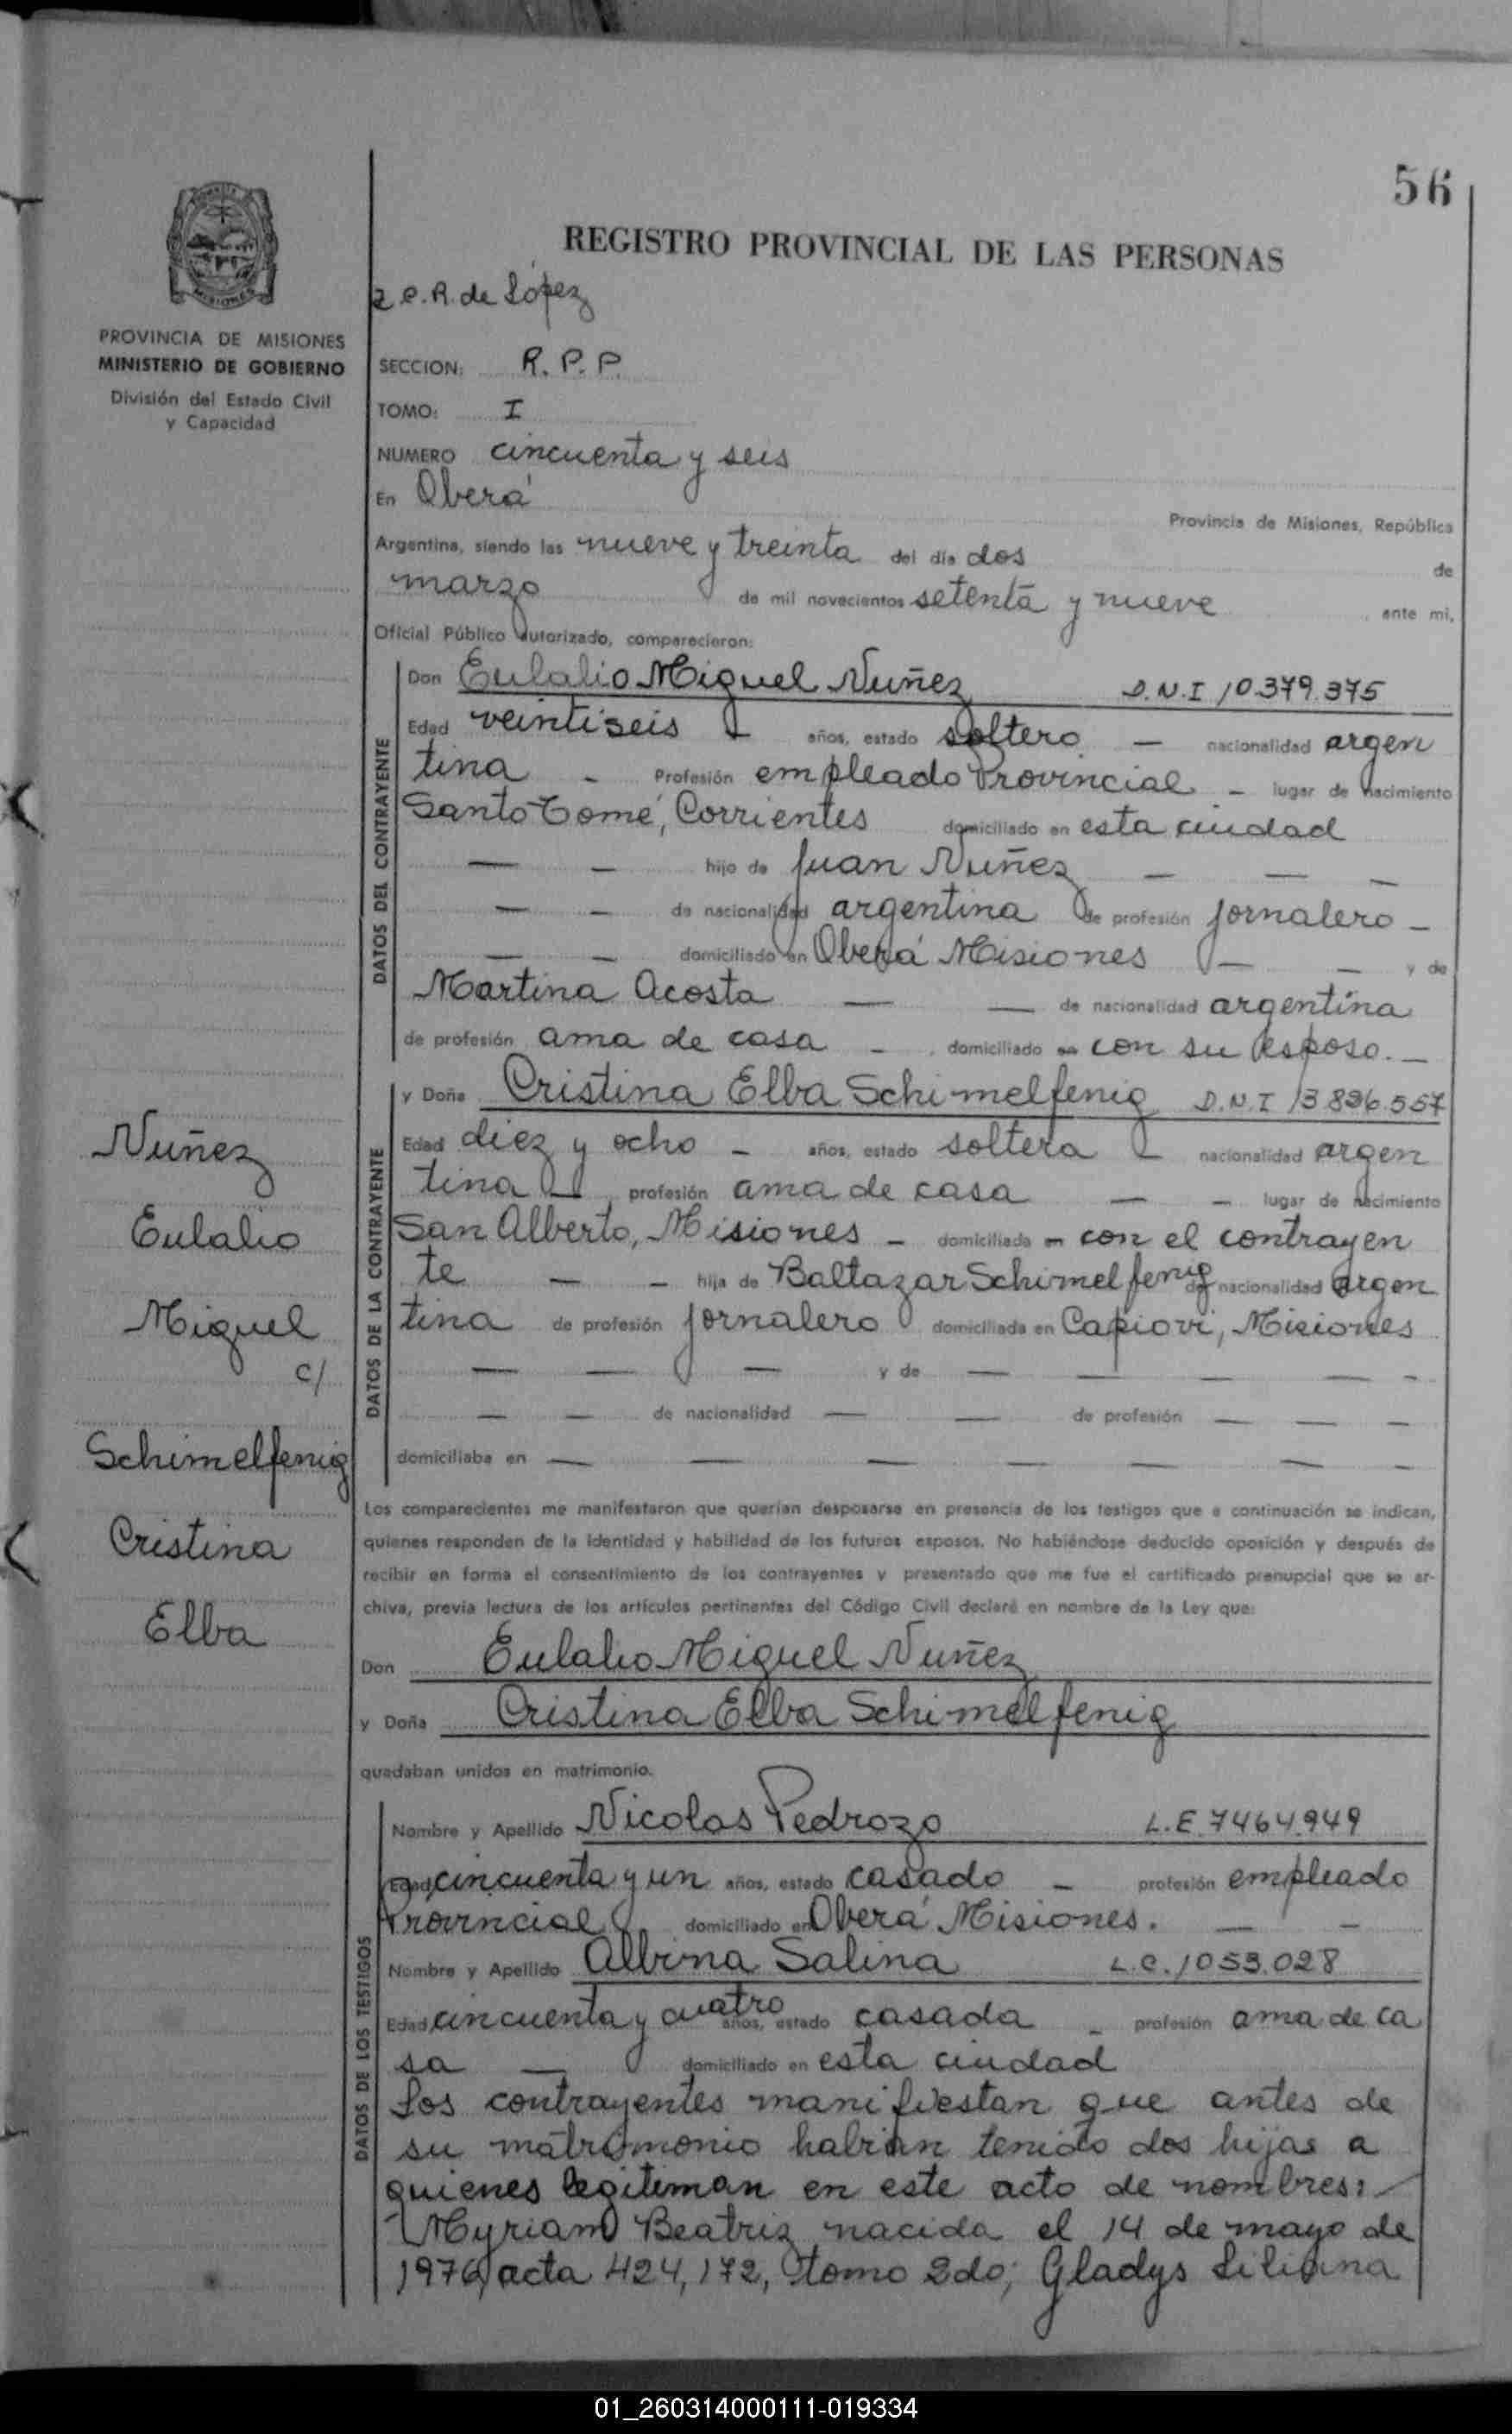 56
REGISTRO PROVINCIAL DE LAS PERSONAS
Z.C.R. de López
MISIONES
PROVINCIA DE MISIONES
MINISTERIO DE GOBIERNO
División del Estado Civil
y Capacidad
SECCION: R. P. P.
TOMO: I
NUMERO cincuenta y seis
En Oberá
Provincia de Misiones, República
Argentina, siendo las nueve y treinta del día dos de
marzo de mil novecientos setenta y nueve ante mi,
Oficial Público Autorizado, comparecieron:
DATOS DEL CONTRAYENTE
Don Eulalio Miguel Nuñez D.N.I 10.379.375
Edad veintiseis años, estado soltero — nacionalidad argen
tina - Profesión empleado Provincial - lugar de nacimiento
Santo Tomé, Corrientes domiciliado en esta ciudad
— — hijo de Juan Nuñez — — —
— — de nacionalidad argentina de profesión jornalero —
— — domiciliado en Oberá Misiones — — y de
Martina Acosta — — de nacionalidad argentina
de profesión ama de casa - domiciliado en con su esposo. —
DATOS DE LA CONTRAYENTE
y Doña Cristina Elba Schimelfenig D.N.I 13.836.557
Edad diez y ocho - años, estado soltera - nacionalidad argen
tina — profesión ama de casa — — lugar de nacimiento
San Alberto, Misiones - domiciliada en con el contrayen
te — — hija de Baltazar Schimelfenig de nacionalidad argen
tina de profesión jornalero domiciliada en Capiovi, Misiones
— — — y de — — — — -
— — de nacionalidad — — de profesión — — —
domiciliaba en — — — — — — —
Nuñez
Eulalio
Miguel
c/
Schimelfenig
Cristina
Elba
Los comparecientes me manifestaron que querían desposarse en presencia de los testigos que a continuación se indican,
quienes responden de la identidad y habilidad de los futuros esposos. No habiéndose deducido oposición y después de
recibir en forma el consentimiento de los contrayentes y presentado que me fue el certificado prenupcial que se ar-
chiva, previa lectura de los artículos pertinentes del Código Civil declaré en nombre de la Ley que:
Don Eulalio Miguel Nuñez
y Doña Cristina Elba Schimelfenig
quedaban unidos en matrimonio.
DATOS DE LOS TESTIGOS
Nombre y Apellido Nicolas Pedrozo L.E. 7464.949
Edad cincuenta y un años, estado casado — profesión empleado
Provincial domiciliado en Oberá Misiones. — —
Nombre y Apellido Albina Salina L.C. 1053.028
Edad cincuenta y cuatro años, estado casada - profesión ama de ca
sa — domiciliado en esta ciudad
Los contrayentes manifiestan que antes de
su matrimonio habian tenido dos hijas a
quienes legitiman en este acto de nombres:
Myriam Beatriz nacida el 14 de mayo de
1976, acta 424, 172, tomo 2do; Gladys Liliana
01_260314000111-019334